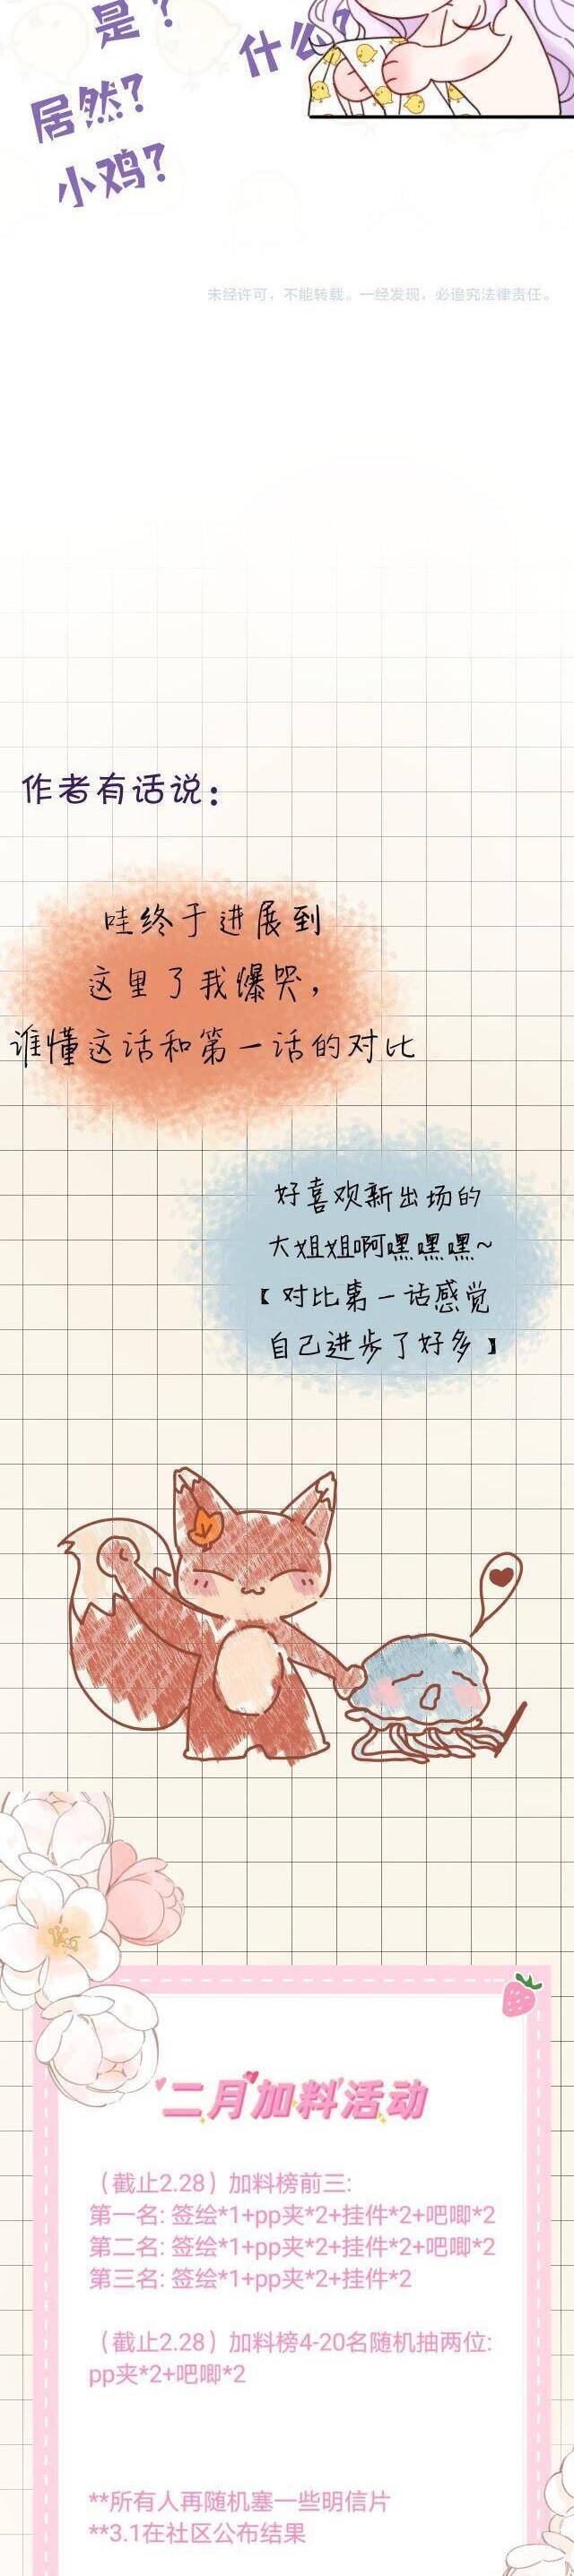 是？
什么？
居然？
小鸡？
未经许可，不能转载。一经发现，必追究法律责任。
作者有话说：
哇终于进展到
这里了我爆哭，
谁懂这话和第一话的对比
好喜欢新出场的
大姐姐啊嘿嘿嘿~
【对比第一话感觉
自己进步了好多】
二月加料活动
（截止2.28）加料榜前三:
第一名: 签绘*1+pp夹*2+挂件*2+吧唧*2
第二名: 签绘*1+pp夹*2+挂件*2+吧唧*2
第三名: 签绘*1+pp夹*2+挂件*2
（截止2.28）加料榜4-20名随机抽两位:
pp夹*2+吧唧*2
**所有人再随机塞一些明信片
**3.1在社区公布结果